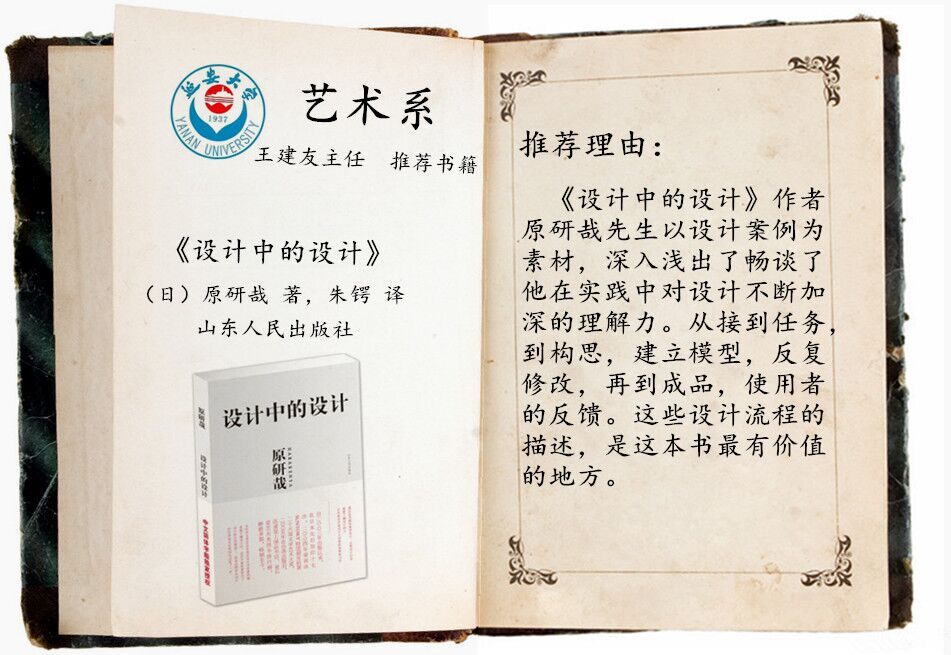 延安大学
1937
YANAN UNIVERSITY
艺术系
王建友主任 推荐书籍
《设计中的设计》
（日）原研哉 著，朱锷 译
山东人民出版社
设计中的设计
原研哉
原研哉
设计中的设计
中文简体字版独家授权
推荐理由：
《设计中的设计》作者
原研哉先生以设计案例为
素材，深入浅出了畅谈了
他在实践中对设计不断加
深的理解力。从接到任务，
到构思，建立模型，反复
修改，再到成品，使用者
的反馈。这些设计流程的
描述，是这本书最有价值
的地方。